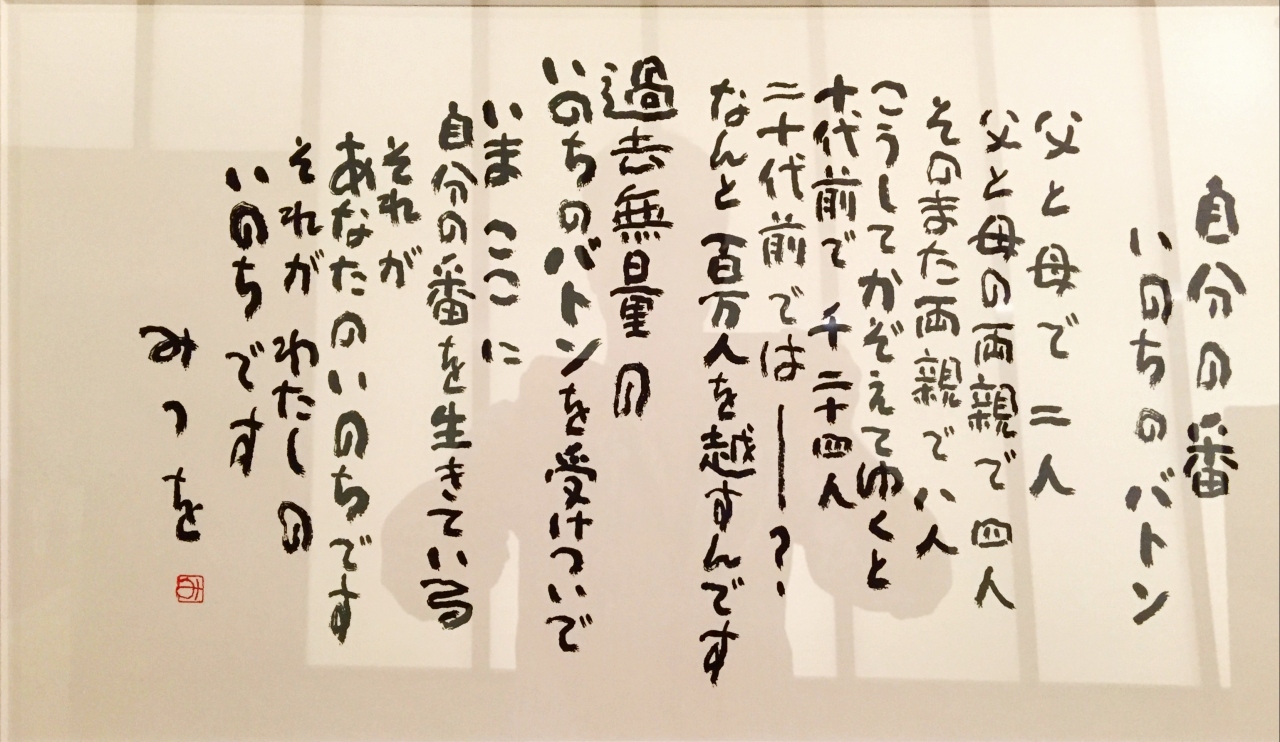 自分の番
いのちのバトン
父と母で二人
父と母の両親で四人
そのまた両親で八人
こうしてかぞえてゆくと
十代前で 千二十四人
二十代前では――?
なんと百万人を越すんです
過去無量の
いのちのバトンを受けついで
いま ここに
自分の番を生きている
それが
あなたのいのちです
それが わたしの
いのち です
みつを